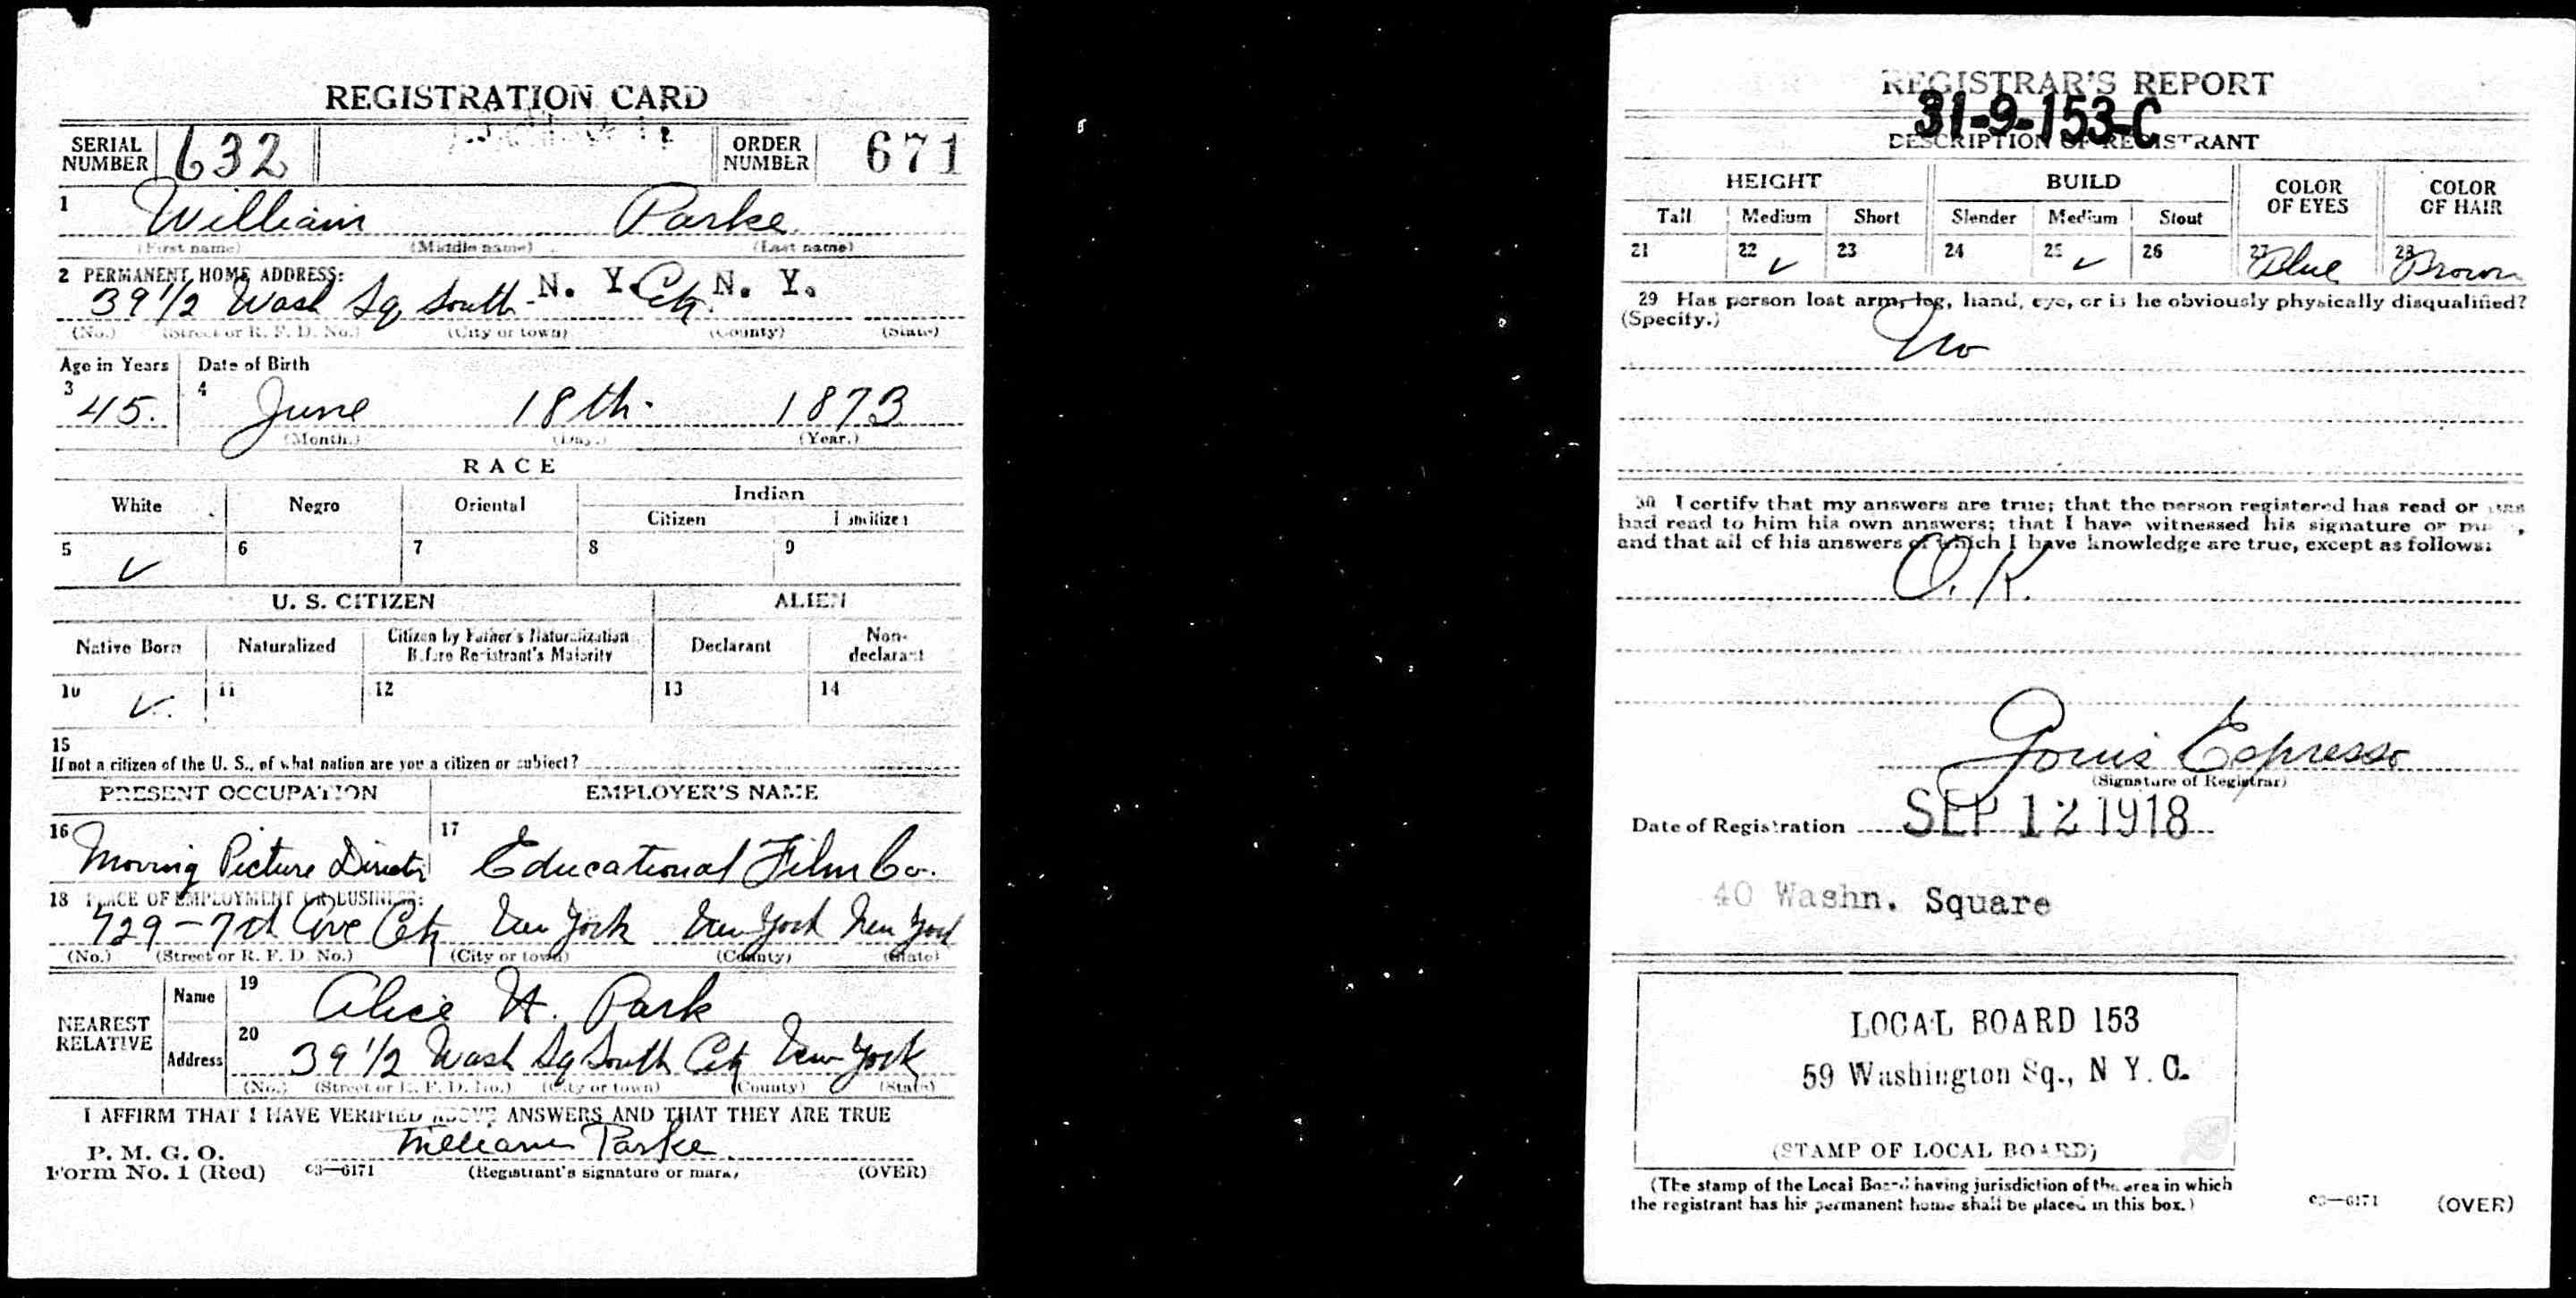 REGISTRATION CARD
SERIAL NUMBER 632 ORDER NUMBER 671
1 William Parke
(First name) (Middle name) (Last name)
2 PERMANENT HOME ADDRESS:
39 1/2 Wash Sq South N. Y. City N. Y.
(No.) (Street or R. F. D. No.) (City or town) (County) (State)
Age in Years Date of Birth
3 45. 4 June 18th. 1873
(Month.) (Day.) (Year.)
RACE
White Negro Oriental Indian
Citizen
5 ✓ 6 7 8 9
U. S. CITIZEN ALIEN
Native Born Naturalized Citizen by Father's Naturalization Before Registrant's Majority Declarant Non-declarant
10 ✓ 11 12 13 14
15
If not a citizen of the U. S., of what nation are you a citizen or subject?
PRESENT OCCUPATION EMPLOYER'S NAME
16 Moving Picture Director 17 Educational Film Co.
18 PLACE OF EMPLOYMENT OR BUSINESS:
729 - 7th Ave City New York New York New York
(No.) (Street or R. F. D. No.) (City or town) (County) (State)
NEAREST RELATIVE Name 19 Alice H. Park
Address 20 39 1/2 Wash Sq South City New York
(No.) (Street or R. F. D. No.) (City or town) (County) (State)
I AFFIRM THAT I HAVE VERIFIED ABOVE ANSWERS AND THAT THEY ARE TRUE
P. M. G. O.
Form No. 1 (Red) 03—6171 William Parke
(Registrant's signature or mark) (OVER)
REGISTRAR'S REPORT
31-9-153-C
DESCRIPTION OF REGISTRANT
HEIGHT BUILD COLOR OF EYES COLOR OF HAIR
Tall Medium Short Slender Medium Stout
21 22 ✓ 23 24 25 ✓ 26 27 Blue 28 Brown
29 Has person lost arm, leg, hand, eye, or is he obviously physically disqualified?
(Specify.)
No
30 I certify that my answers are true; that the person registered has read or has
had read to him his own answers; that I have witnessed his signature or
and that all of his answers of which I have knowledge are true, except as follows:
O. K.
Louis Espresso
(Signature of Registrar)
Date of Registration SEP 12 1918
40 Washn. Square
LOCAL BOARD 153
59 Washington Sq., N Y. C.
(STAMP OF LOCAL BOARD)
(The stamp of the Local Board having jurisdiction of the area in which
the registrant has his permanent home shall be placed in this box.)
03—6171 (OVER)